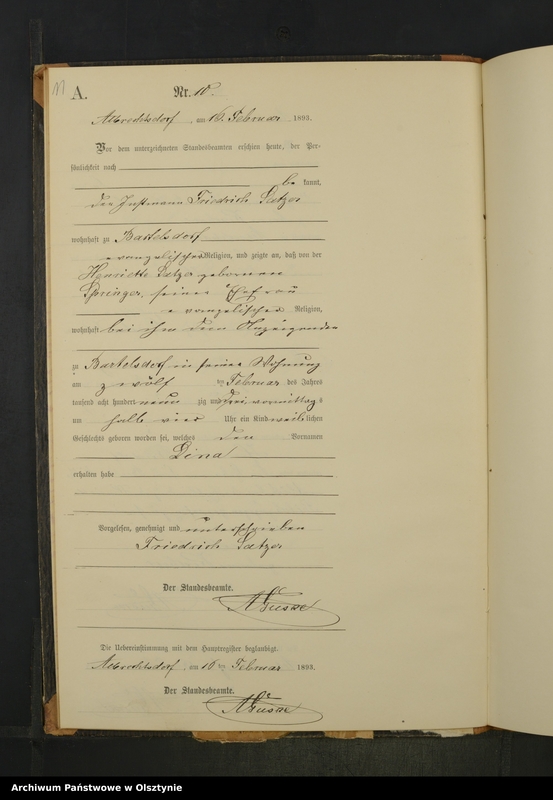 11
A.
Nr. 10.
Albrechtsdorf, am 16. Februar 1893.
Vor dem unterzeichneten Standesbeamten erschien heute, der Per-
sönlichkeit nach
be kannt,
der Instmann Friedrich
wohnhaft zu Bartelsdorf
evangelischer Religion, und zeigte an, daß von der
Henriette geborenen
Springer, seiner Ehefrau
evangelischer Religion,
wohnhaft bei ihm dem Anzeigenden
zu Bartelsdorf in seiner Wohnung
am zwölf ten Februar des Jahres
tausend acht hundert neun zig und drei vormittags
um halb vier Uhr ein Kind weiblichen
Geschlechts geboren worden sei, welches den Vornamen
Lina
erhalten habe
Vorgelesen, genehmigt und unterschrieben
Friedrich
Der Standesbeamte.
Die Uebereinstimmung mit dem Hauptregister beglaubigt.
Albrechtsdorf, am 16 ten Februar 1893.
Der Standesbeamte.
Archiwum Państwowe w Olsztynie